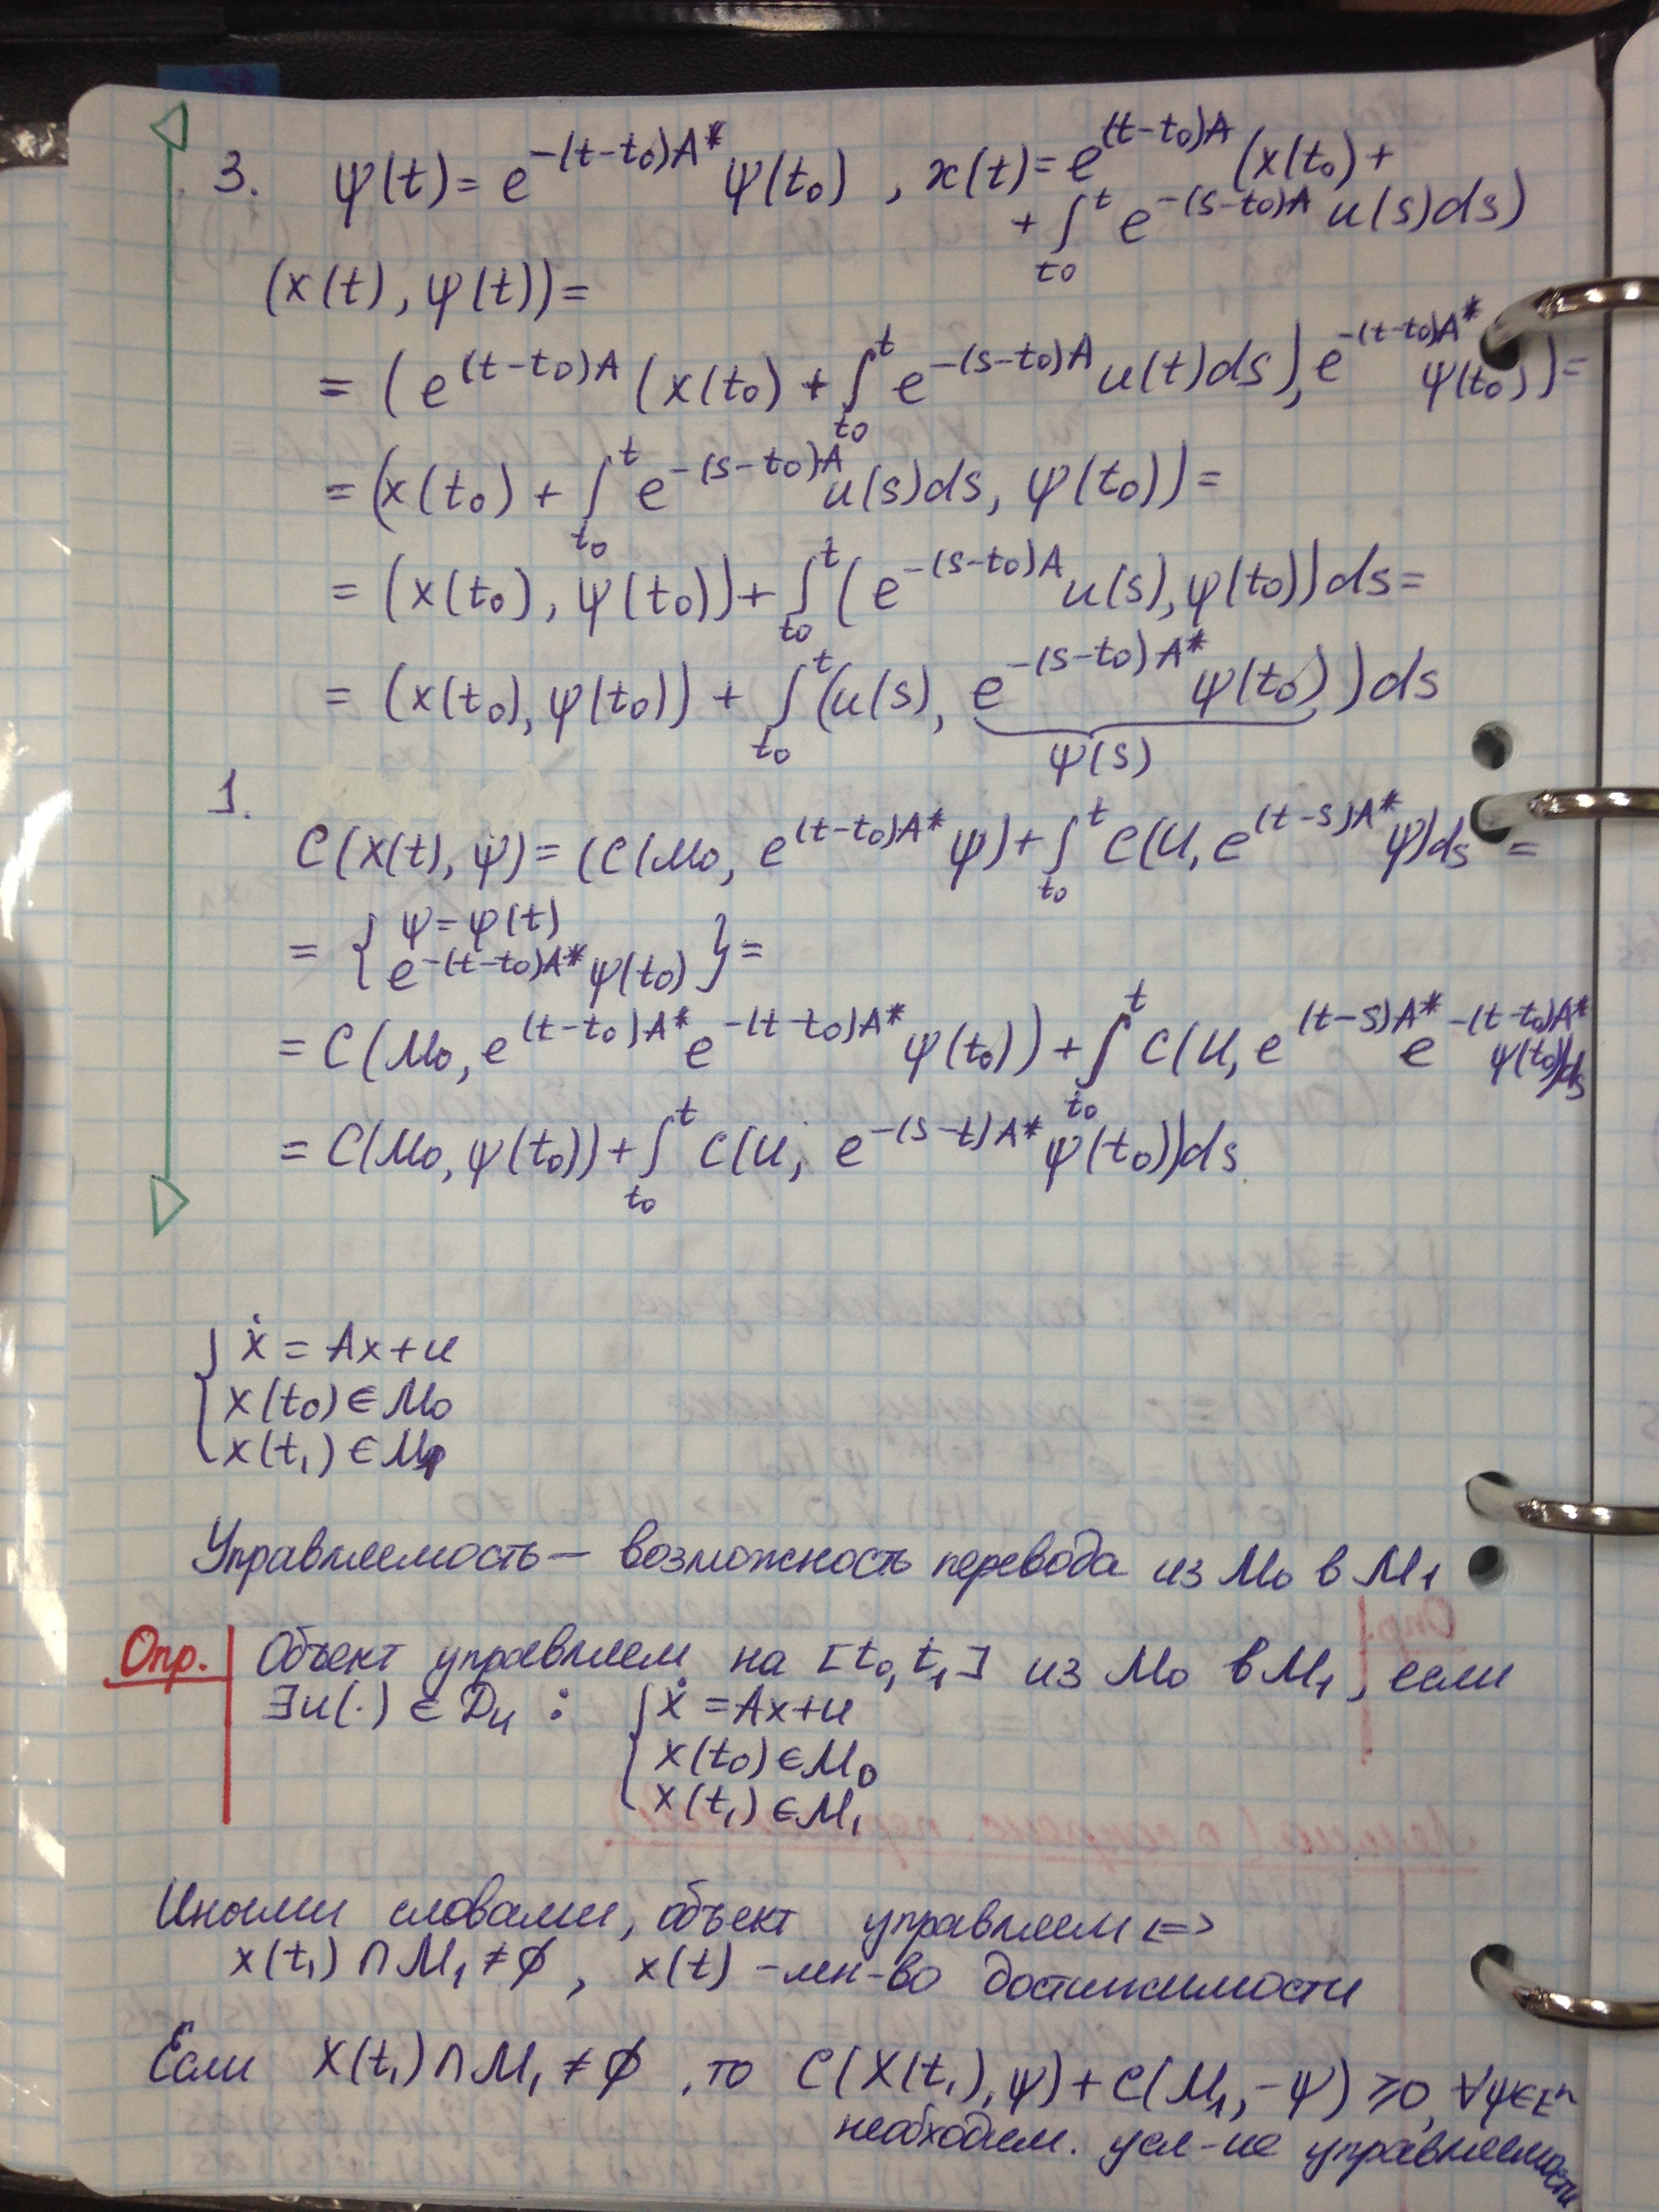 3. ψ(t) = e^{-(t-t₀)A*} ψ(t₀) , x(t) = e^{(t-t₀)A} (x(t₀) +
+ ∫_{t₀}^{t} e^{-(s-t₀)A} u(s)ds)
(x(t), ψ(t)) =
= (e^{(t-t₀)A} (x(t₀) + ∫_{t₀}^{t} e^{-(s-t₀)A} u(t)ds), e^{-(t-t₀)A*} ψ(t₀)) =
= (x(t₀) + ∫_{t₀}^{t} e^{-(s-t₀)A} u(s)ds, ψ(t₀)) =
= (x(t₀), ψ(t₀)) + ∫_{t₀}^{t} (e^{-(s-t₀)A} u(s), ψ(t₀))ds =
= (x(t₀), ψ(t₀)) + ∫_{t₀}^{t} (u(s), e^{-(s-t₀)A*} ψ(t₀))ds
ψ(s)
1.
C(X(t), ψ) = (C(M₀, e^{(t-t₀)A*} ψ) + ∫_{t₀}^{t} C(U, e^{(t-s)A*} ψ)ds =
= { ψ = ψ(t)
e^{-(t-t₀)A*} ψ(t₀) } =
= C(M₀, e^{(t-t₀)A*} e^{-(t-t₀)A*} ψ(t₀)) + ∫_{t₀}^{t} C(U, e^{(t-s)A*} e^{-(t-t₀)A*} ψ(t₀))ds
= C(M₀, ψ(t₀)) + ∫_{t₀}^{t} C(U, e^{-(s-t)A*} ψ(t₀))ds.
{ ẋ = Ax+u
x(t₀) ∈ M₀
x(t₁) ∈ M₁
Управляемость — возможность перевода из M₀ в M₁
Опр. Объект управляем на [t₀, t₁] из M₀ в M₁, если
∃u(·) ∈ D_U : { ẋ = Ax+u
x(t₀) ∈ M₀
x(t₁) ∈ M₁
Иными словами, объект управляем <=>
x(t₁) ∩ M₁ ≠ ∅ , x(t) - мн-во достижимости
Если X(t₁) ∩ M₁ ≠ ∅ , то C(X(t₁), ψ) + C(M₁, -ψ) ≥ 0, ∀ψ ∈ Eⁿ
необходим. усл-ие управляемости